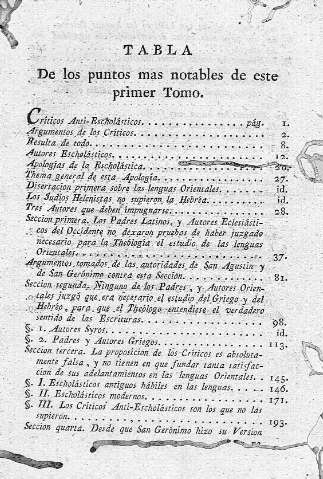 TABLA
De los puntos mas notables de este
primer Tomo.
Criticos Anti-Escholásticos. . . . . . . . . . . . . pág. 1.
Argumentos de los Criticos. . . . . . . . . . . . . . . 2.
Resulta de todo. . . . . . . . . . . . . . . . . . . . 8.
Autores Escholásticos. . . . . . . . . . . . . . . . . 12.
Apologias de la Escholástica. . . . . . . . . . . . . .
Thema general de esta Apologia. . . . . . . . . . . . . 27.
Disertacion primera sobre las lenguas Orientales. . . . id.
Los Judios Helenistas no supieron la Hebréa. . . . . . id.
Tres Autores que deben impugnarse. . . . . . . . . . . 28.
Seccion primera. Los Padres Latinos, y Autores Eclesiásti-
cos del Occidente no dexaron pruebas de haber juzgado
necesario para la Theologia el estudio de las lenguas
Orientales. . . . . . . . . . . . . . . . . . . . . . 37.
Argumentos tomados de las autoridades de San Agustin y
de San Gerónimo contra esta Seccion. . . . . . . . . . 81.
Seccion segunda. Ninguno de los Padres, y Autores Orien-
tales juzgó que era necesario el estudio del Griego y del
Hebréo, para que el Theólogo entendiese el verdadero
sentido de las Escrituras. . . . . . . . . . . . . . . 98.
§. 1. Autores Syros. . . . . . . . . . . . . . . . . . id.
§. 2. Padres y Autores Griegos. . . . . . . . . . . . . 113.
Seccion tercera. La proposicion de los Criticos es absoluta-
mente falsa, y no tienen en que fundar tanta satisfac-
cion de sus adelantamientos en las lenguas Orientales. . 145.
§. I. Escholásticos antiguos hábiles en las lenguas. . . 146.
§. II. Escholásticos modernos. . . . . . . . . . . . . 171.
§. III. Los Criticos Anti-Escholásticos son los que no las
supieron. . . . . . . . . . . . . . . . . . . . . . . 193.
Seccion quarta. Desde que San Gerónimo hizo su Version